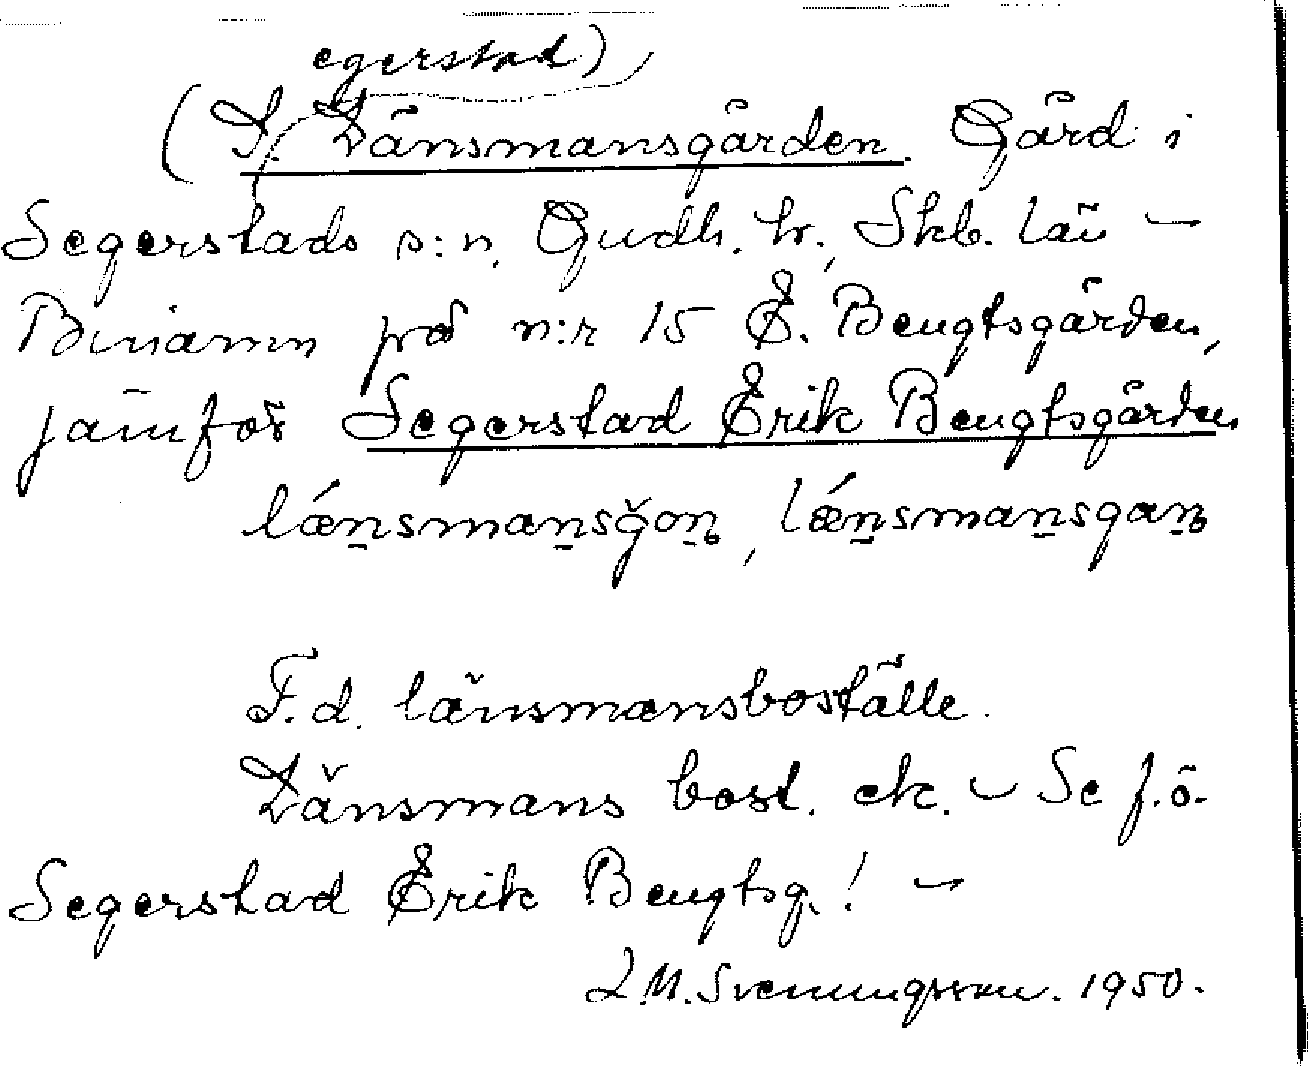 egerstad)
(S. Länsmansgården. Gård i
Segerstads s:n, Gudh. hr., Skb. län –
Binamn på n:r 15 E. Bengtsgården,
jämför Segerstad Erik Bengtsgården
lǽn̠sman̠sğon̠, lǽn̠sman̠sgan̠
F.d. länsmansboställe.
Länsmans bost. ek. – Se f.ö.
Segerstad Erik Bengtsg.! –
L.M. Svenungsson. 1950.